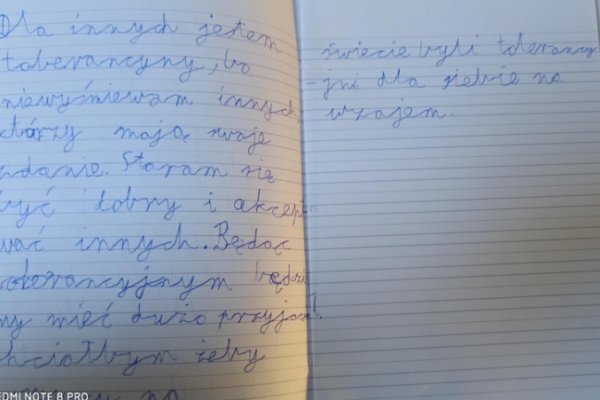 Dla innych jestem
toberancyny, bo
niewyśmiewam innych,
którzy mają swoje
zdanie. Staram się
być dobry i akcep-
wać innych. Będąc
toberancyjnym będzie
my mieć dużo przyjaciół.
chciałbym żeby
na
świecie byli tolerancy
-jni dla siebie na
wzajem.
REDMI NOTE 8 PRO